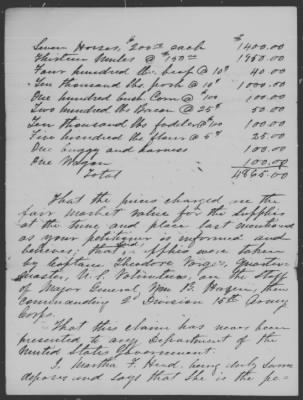 $
Seven Horses, $200.00 each 1400.00
Thirteen Mules @ $150.00 1950.00
Four hundred lbs beef @ 10¢ 40.00
Ten thousand lbs pork @ 10¢ 1000.00
One hundred bush Corn @ $1.00 100.00
Two hundred lbs Bacon @ 25¢ 50.00
Ten thousand lbs fodder @ 100 100.00
Five hundred lbs flour @ 5¢ 25.00
One buggy and harness 100.00
One Wagon 100.00
Total 4865.00
That the prices charged are the
fair market value for the supplies
at the time and place last mentioned
as your petitioner is informed and
believes; that said supplies were taken
by Captain Theodore Quarter-
Master, U.S. Volunteers, on the Staff
of Major General, Wm B. Hazen, then
commanding 2d Division 15th Army
Corps.
That this claim has never been
presented to any Department of the
United States Government.
I, Martha F. Heid, being duly sworn
deposes and says that she is the pe-